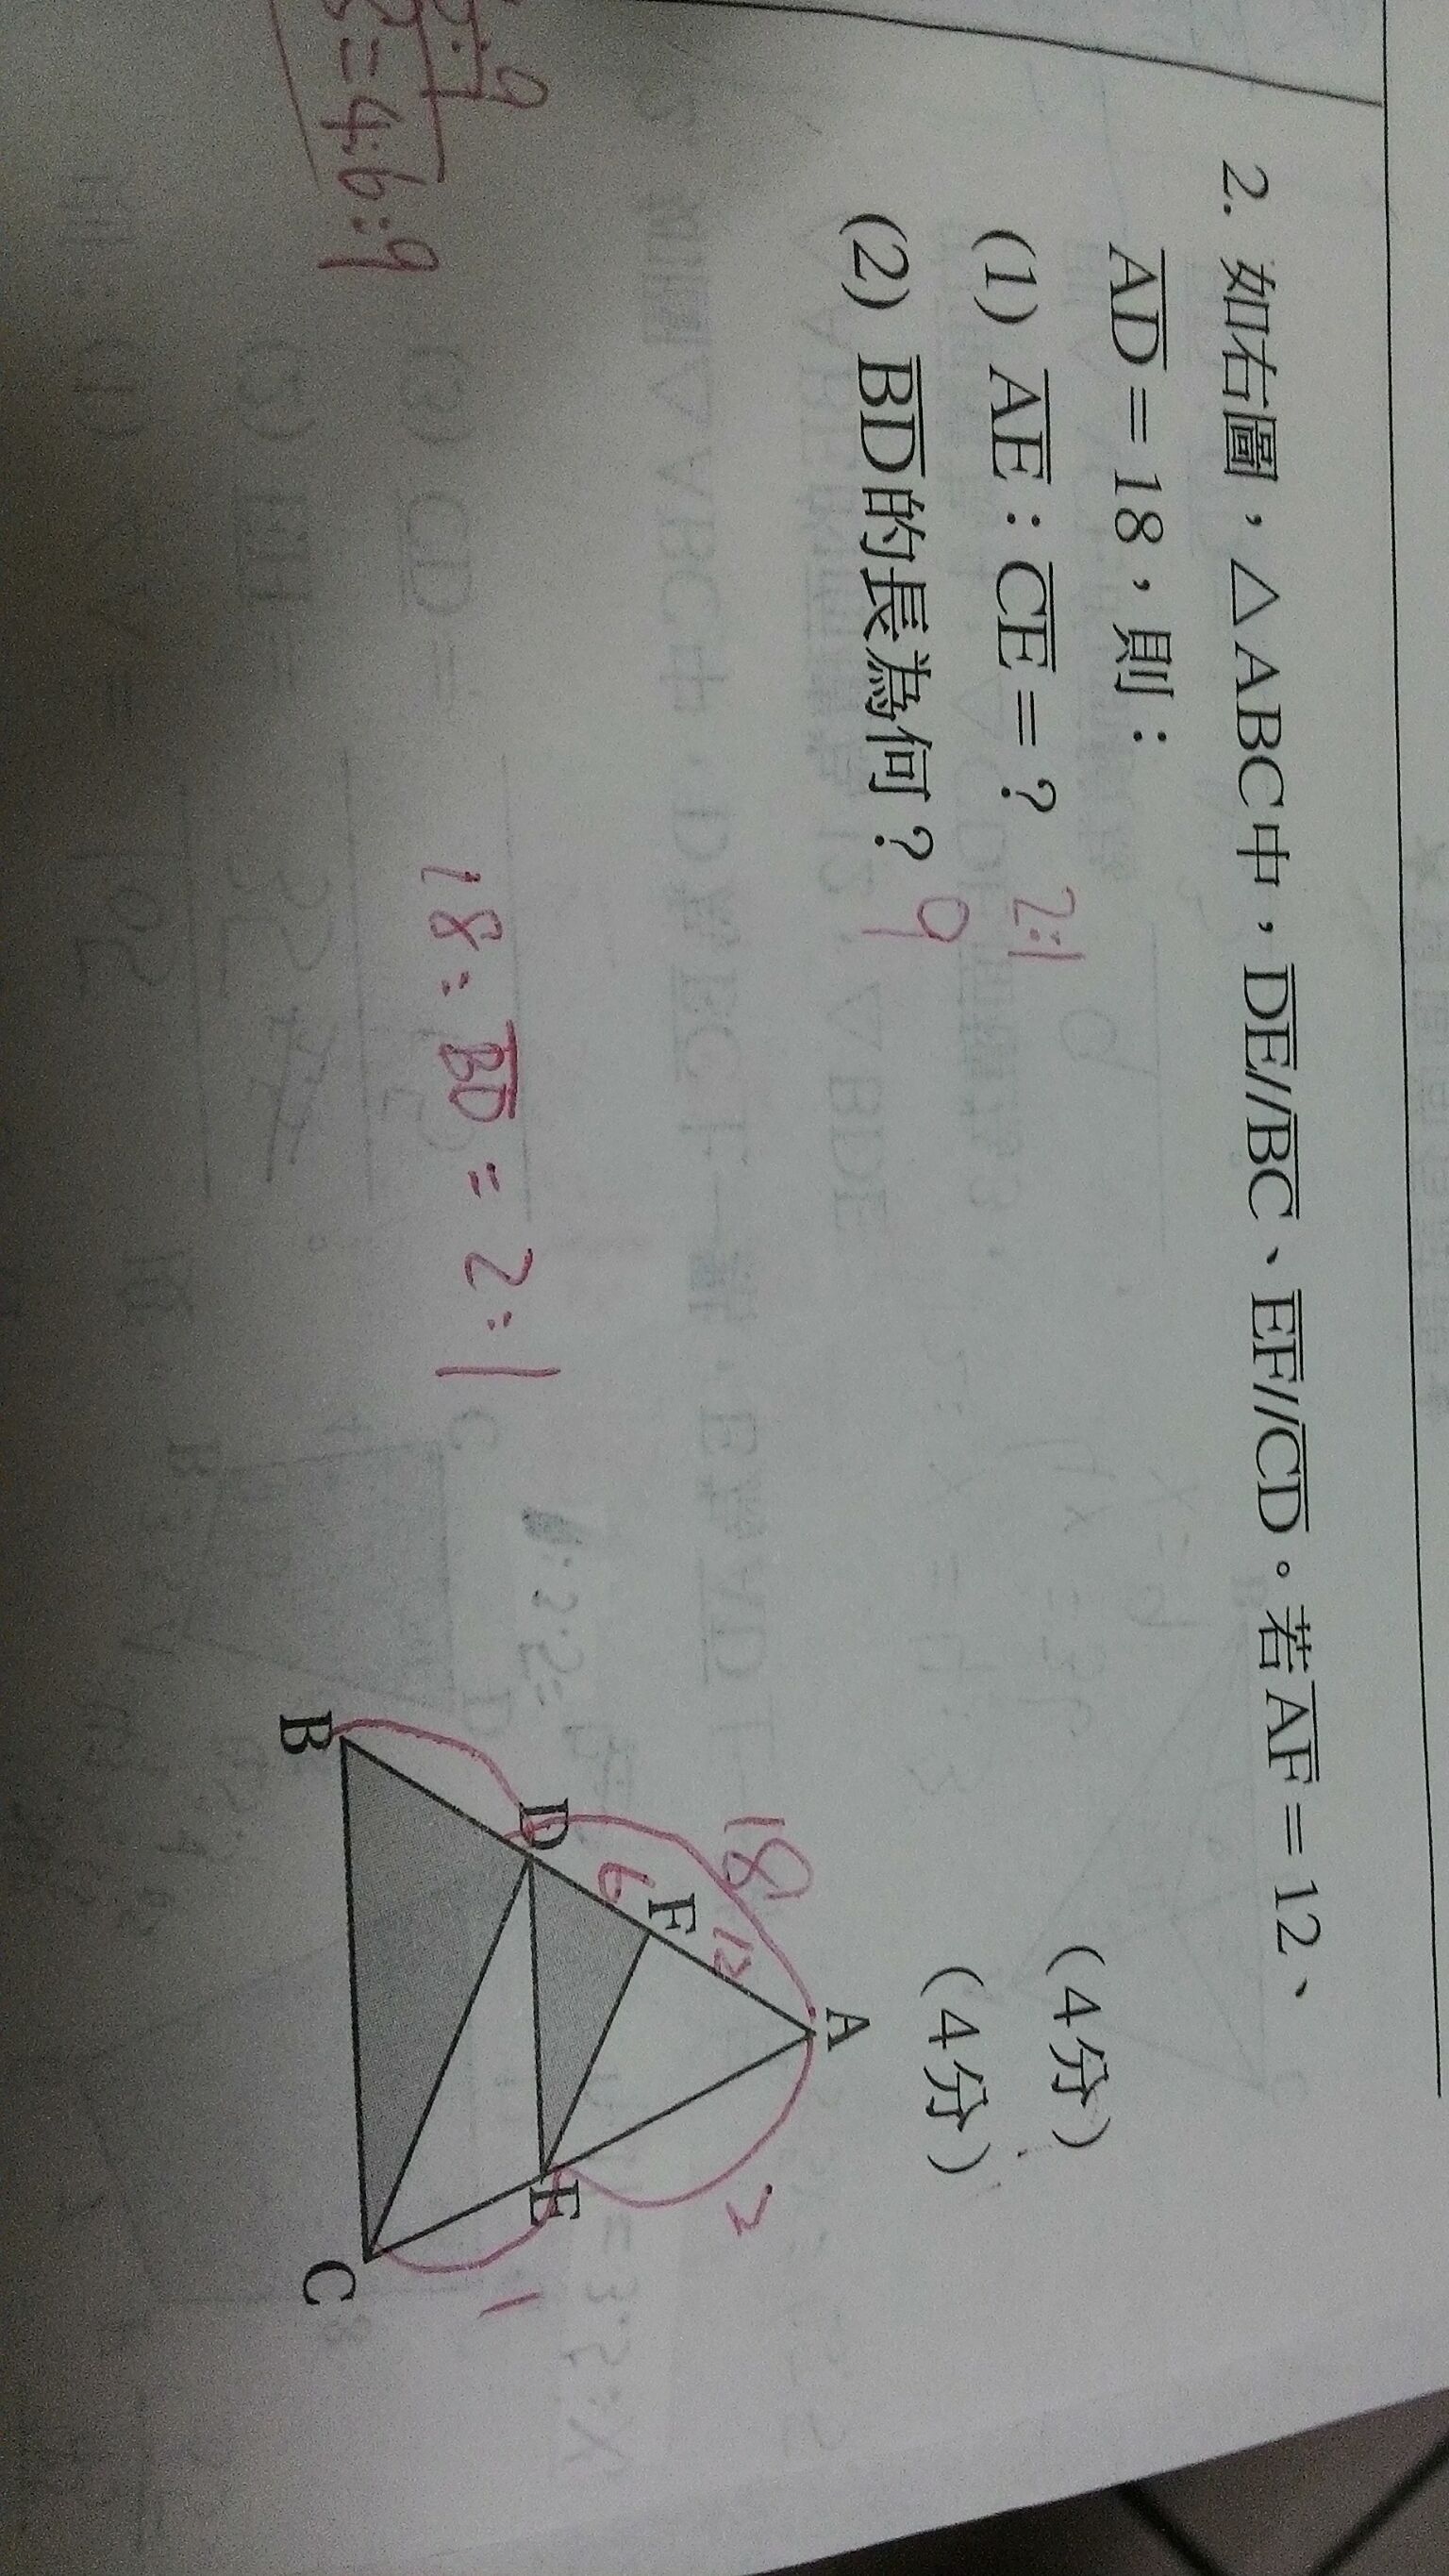 2. 如右圖，△ABC中，DE//BC、EF//CD。若AF=12、
AD=18，則：
(1) AE：CE=？ 2:1 (4分)
(2) BD的長為何？ 9 (4分)
18:BD=2:1
=4:6:9
A
18
12
F
6
D
2
E
1
B
C